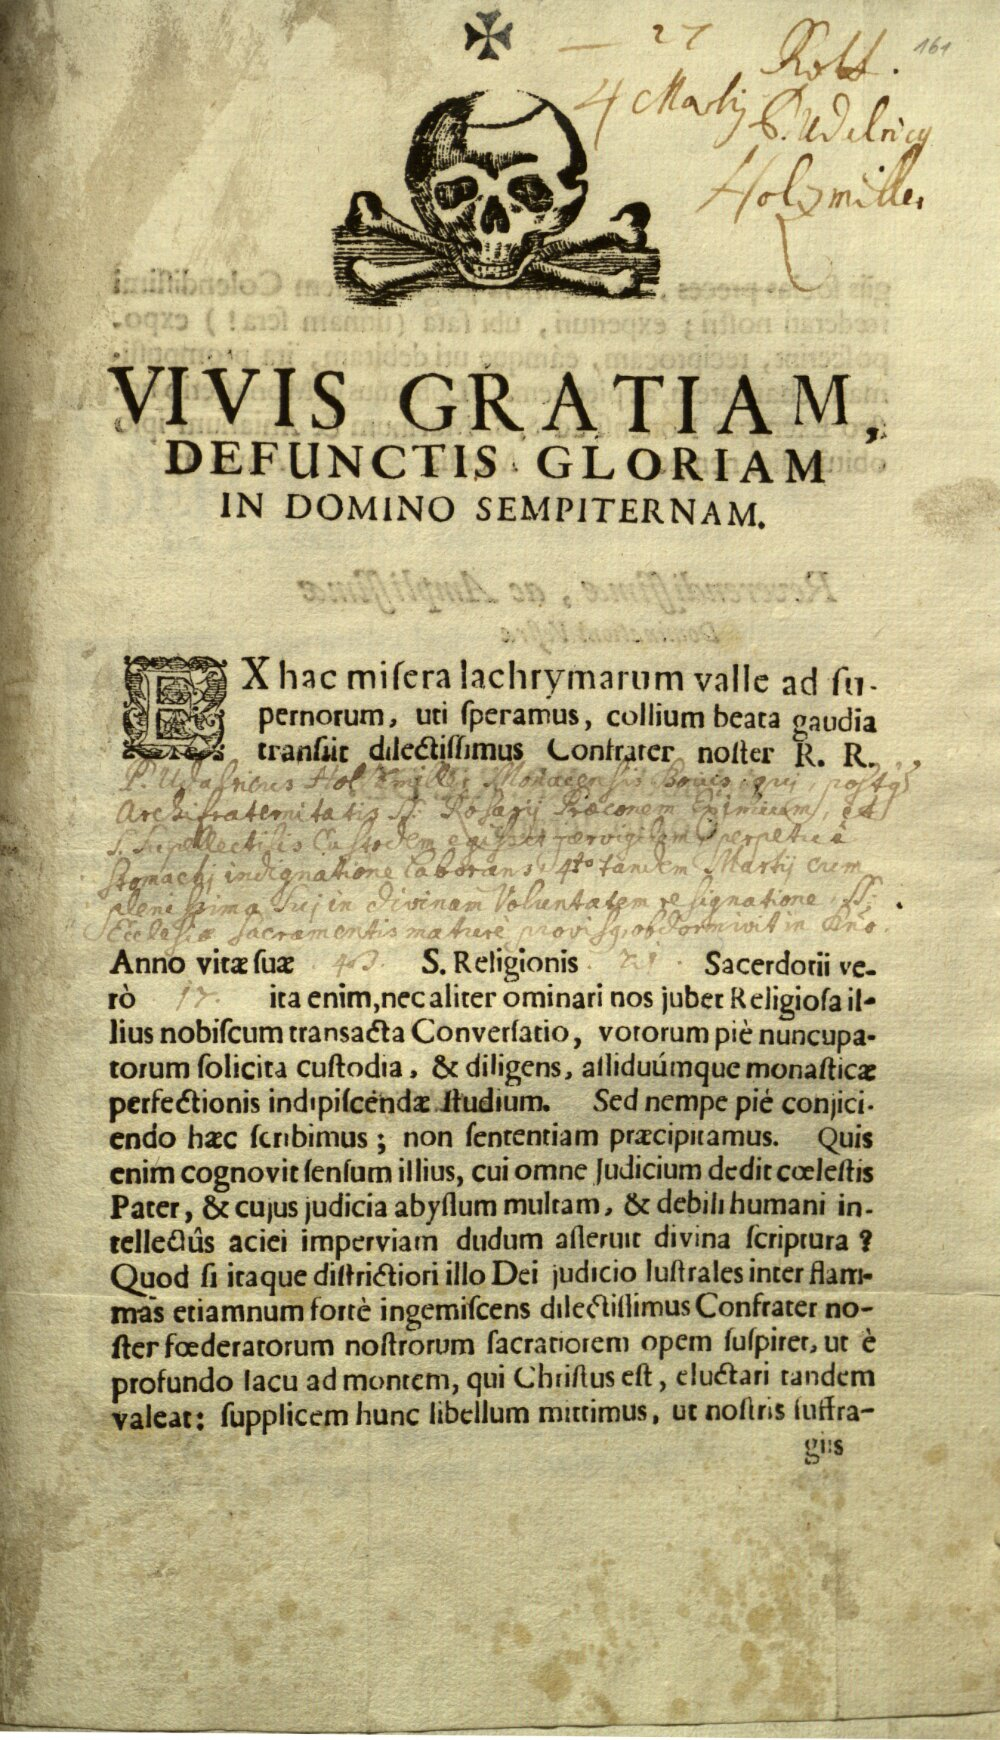 27
Rott.
161
4 Martij
P. Udalricq
Holzmiller
VIVIS GRATIAM,
DEFUNCTIS GLORIAM
IN DOMINO SEMPITERNAM.
EX hac miſera lachrymarum valle ad ſu-
pernorum, uti ſperamus, collium beata gaudia
transiit dilectiſſimus Confrater noſter R. R.
P. Udalricus Holtzmiller Monacensis Boius, qui, postq̃
Archifraternitatis SS. Rosarij Præconem Eximium, et
S. Supellectilis Custodem egisset pervigilem, perpetua
stomachj indignatione laborans, 4to tandem Martij cum
plenissima suj in divinam Voluntatem resignatione, SS.
Ecclesiæ sacramentis mature provisq, obdormivit in Dño.
Anno vitæ ſuæ 43. S. Religionis 21. Sacerdotii ve-
rò 17. ita enim, nec aliter ominari nos jubet Religioſa il-
lius nobiſcum transacta Converſatio, votorum piè nuncupa-
torum ſolicita cuſtodia, & diligens, aſſiduúmque monaſticæ
perfectionis indipiſcendæ ſtudium. Sed nempe piè conjici-
endo hæc ſcribimus; non ſententiam præcipitamus. Quis
enim cognovit ſenſum illius, cui omne Judicium dedit cœleſtis
Pater, & cujus judicia abyſſum multam, & debili humani in-
tellectûs aciei imperviam dudum aſſeruit divina ſcriptura?
Quod ſi itaque diſtrictiori illo Dei judicio luſtrales inter flam-
mas etiamnum fortè ingemiſcens dilectiſſimus Confrater no-
ſter fœderatorum noſtrorum ſacratiorem opem ſuſpiret, ut è
profundo lacu ad montem, qui Chriſtus eſt, eluctari tandem
valeat: ſupplicem hunc libellum mittimus, ut noſtris ſuffra-
giis